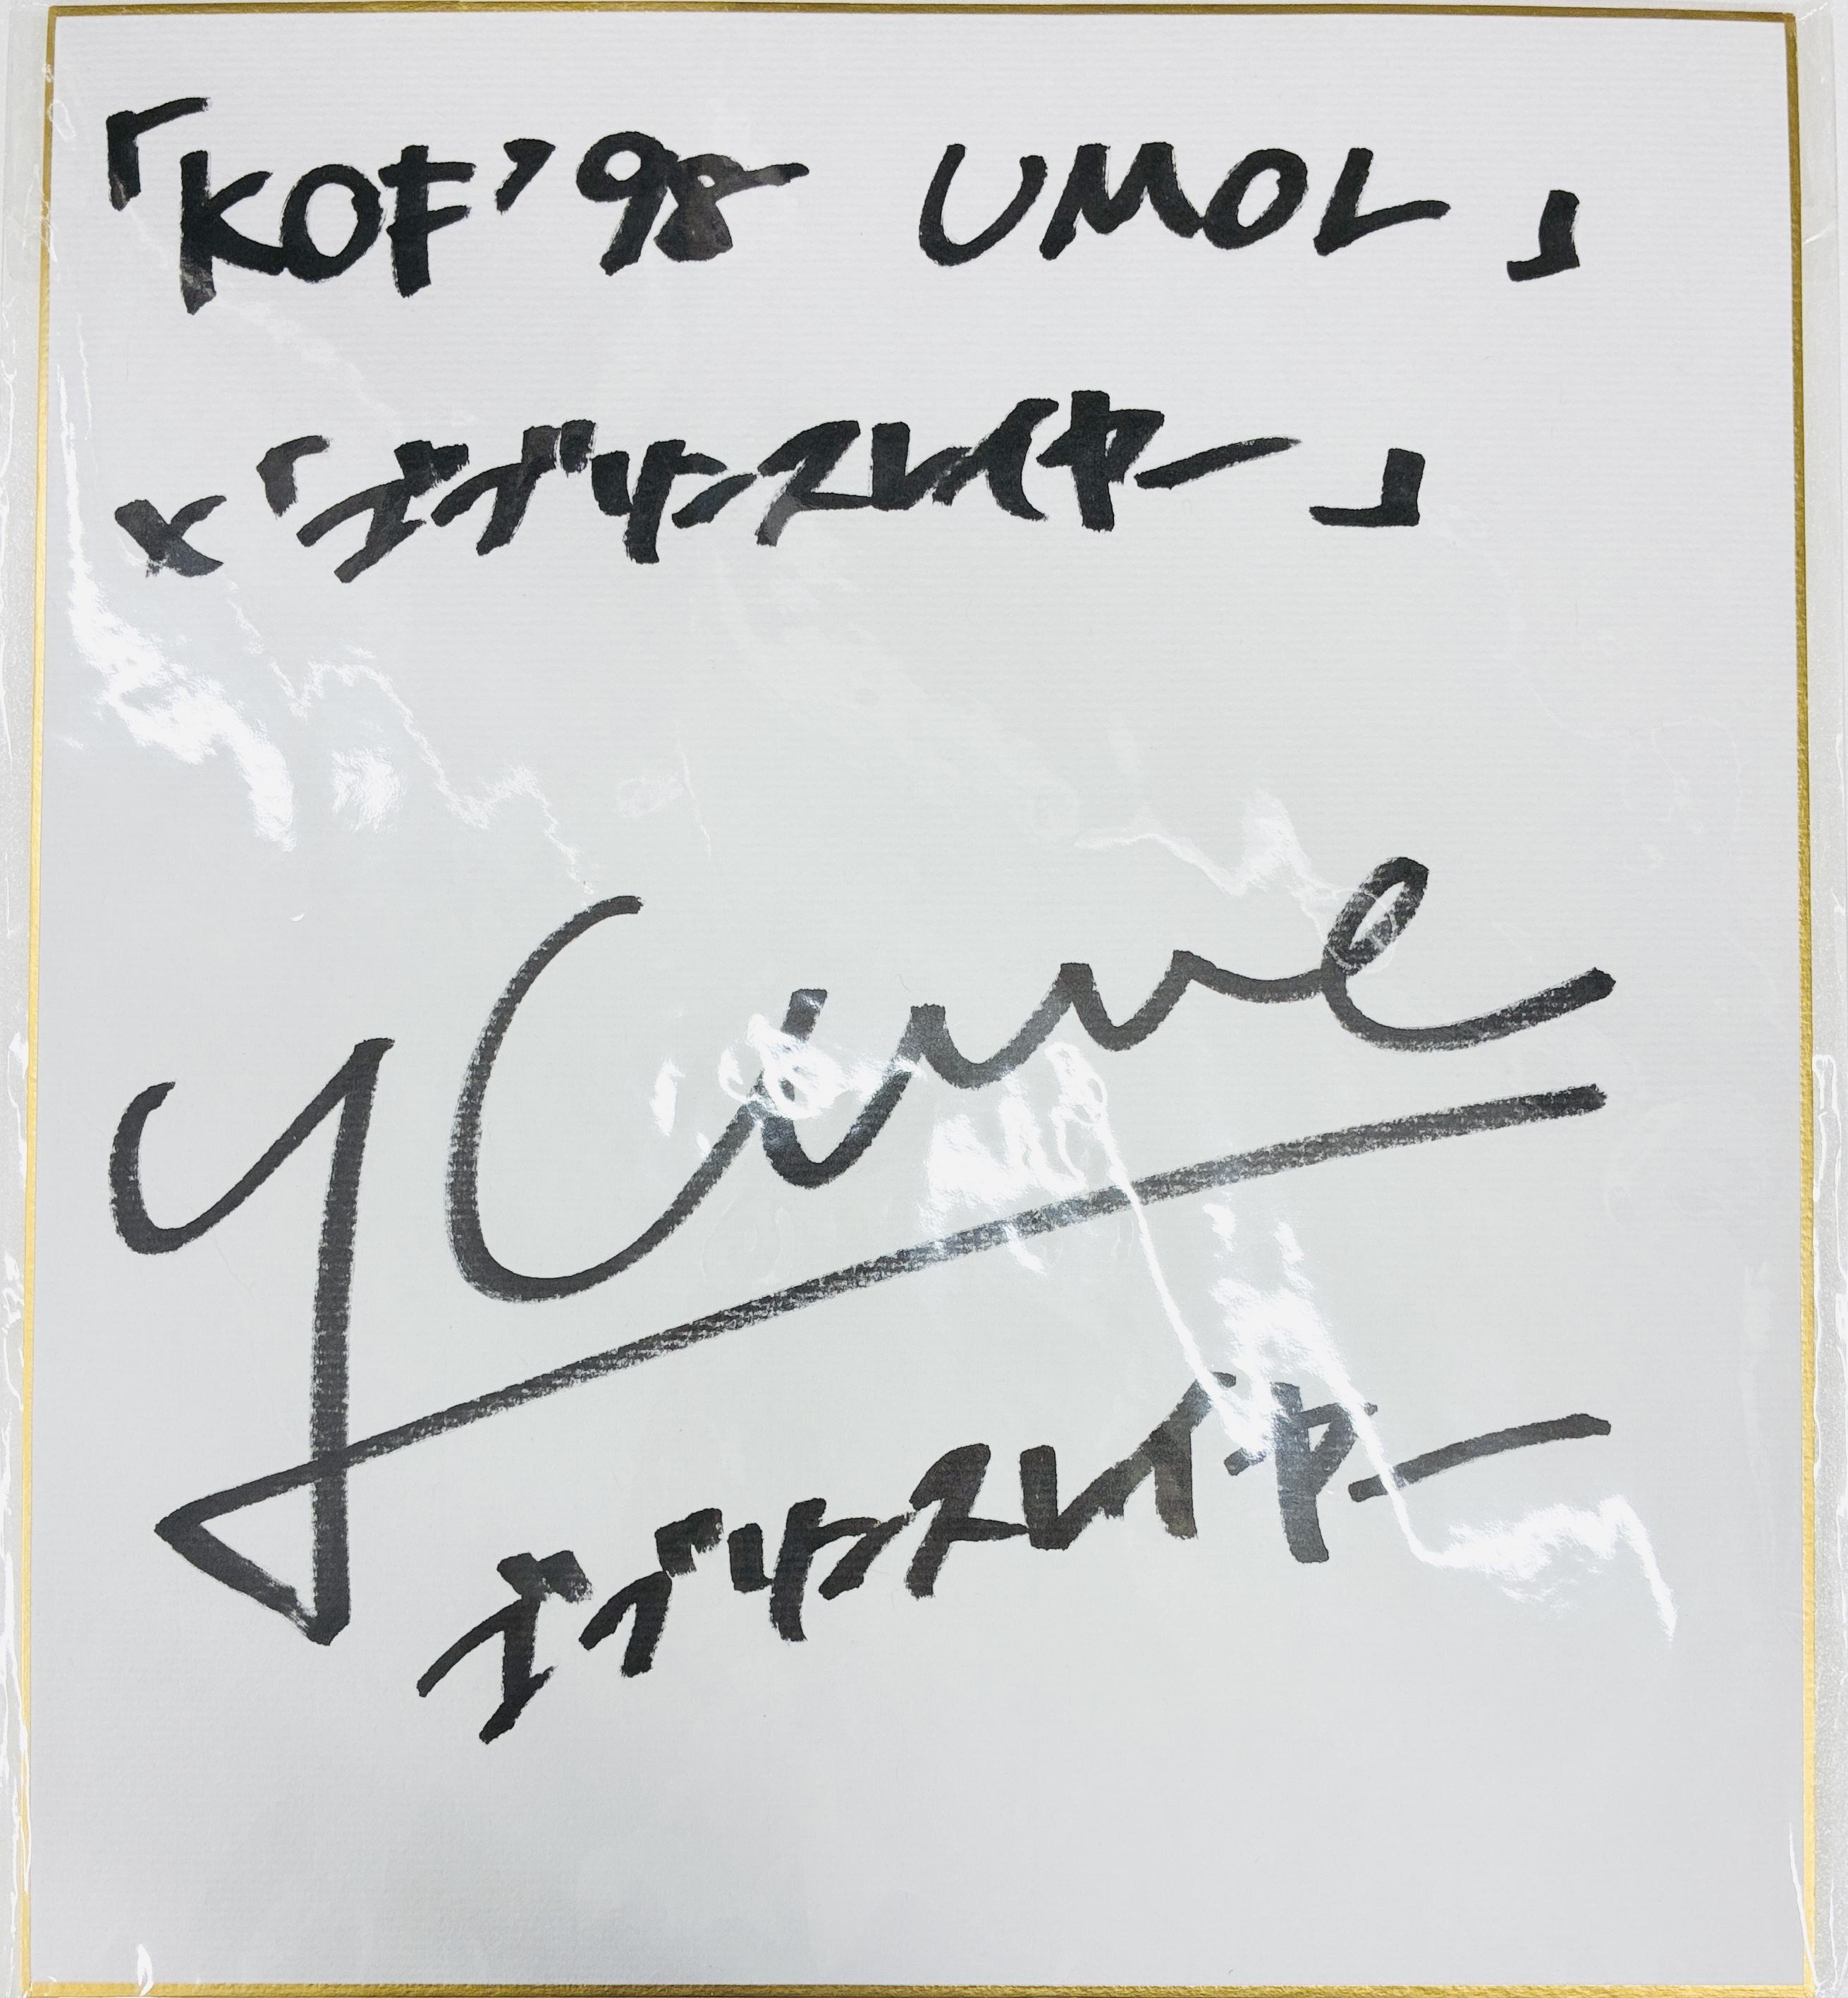 「KOF'98 UMOL」
×「ゴブリンスレイヤー」
ゴブリンスレイヤー